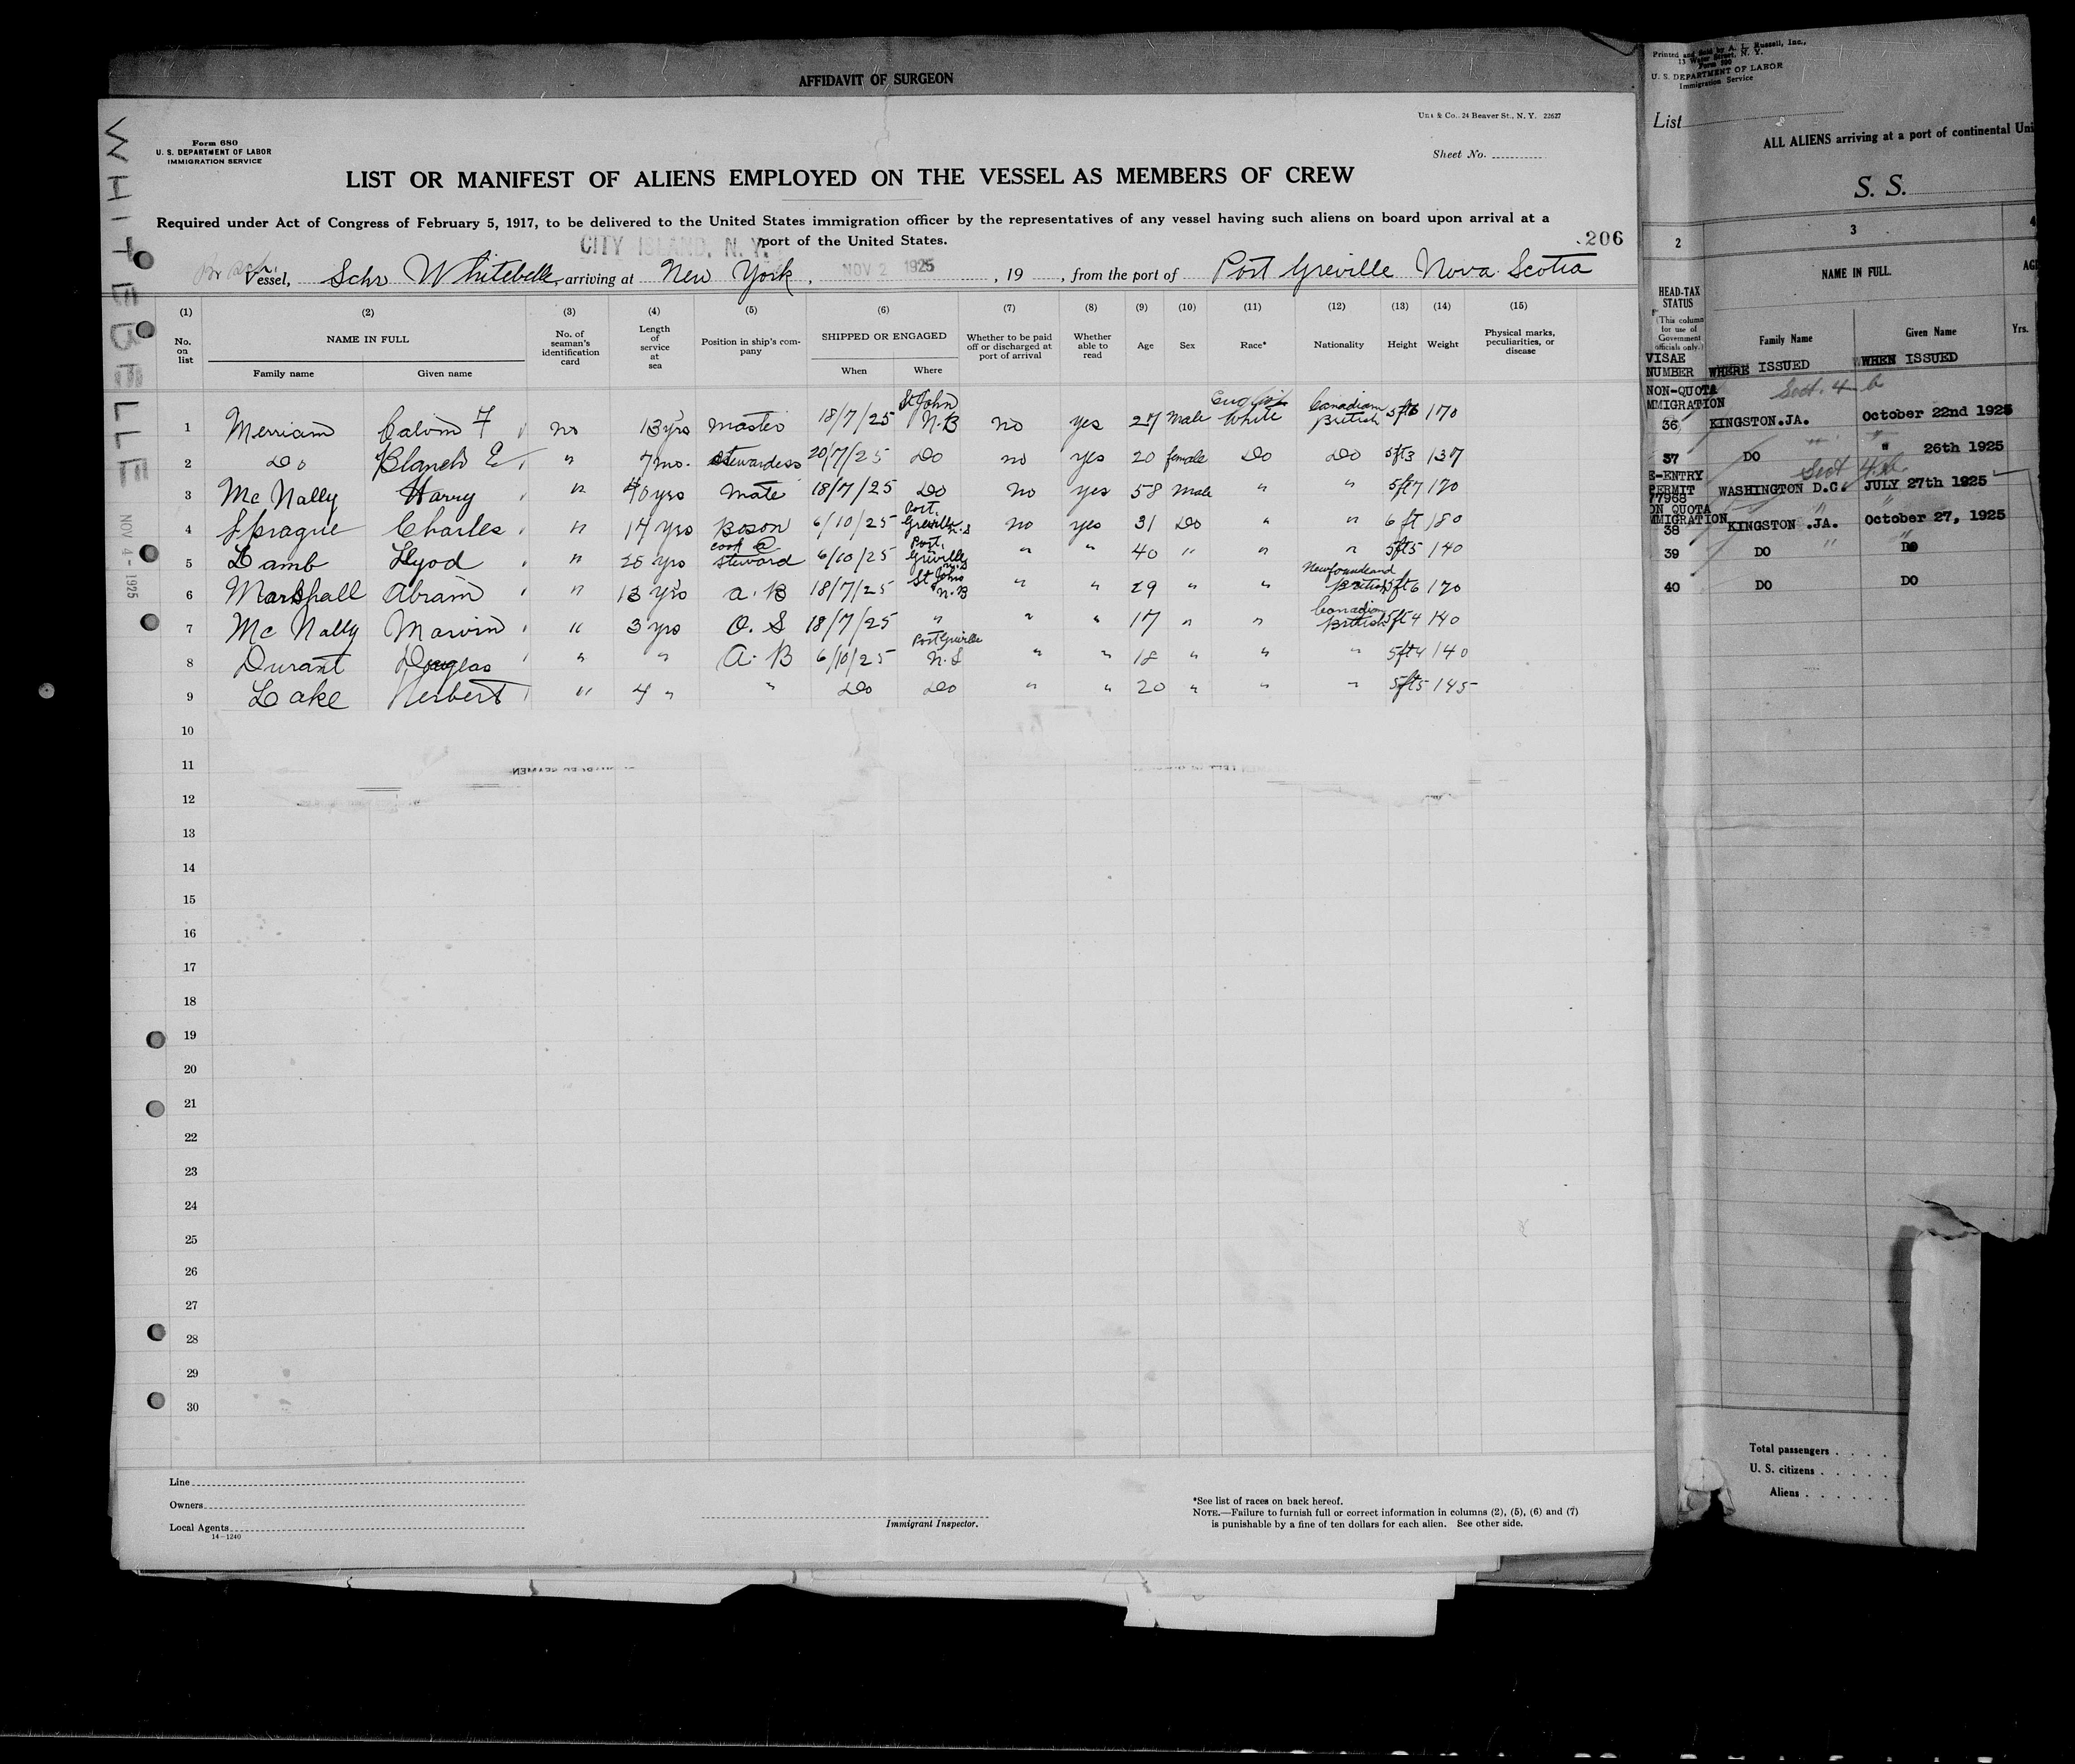 AFFIDAVIT OF SURGEON
WHITEBELLE
NOV 4 - 1925
Form 680
U. S. DEPARTMENT OF LABOR
IMMIGRATION SERVICE
& Co., 24 Beaver St., N. Y. 22627
Sheet No.
LIST OR MANIFEST OF ALIENS EMPLOYED ON THE VESSEL AS MEMBERS OF CREW
Required under Act of Congress of February 5, 1917, to be delivered to the United States immigration officer by the representatives of any vessel having such aliens on board upon arrival at a
port of the United States.
CITY ISLAND, N. Y.
206
Vessel, Schr Whitebelle, arriving at New York, NOV 2 1925, 19 , from the port of Port Greville Nova Scotia
(1) (2) (3) (4) (5) (6) (7) (8) (9) (10) (11) (12) (13) (14) (15)
No. on list NAME IN FULL No. of seaman's identification card Length of service at sea Position in ship's company SHIPPED OR ENGAGED Whether to be paid off or discharged at port of arrival Whether able to read Age Sex Race* Nationality Height Weight Physical marks, peculiarities, or disease
Family name Given name When Where
1 Merriam Calvin F no 13 yrs master 18/7/25 St John N.B no yes 27 male English White Canadian British 5ft6 170
2 Do Blanch E " 7 mo. stewardess 20/7/25 Do no yes 20 female Do Do 5ft3 137
3 Mc Nally Harry " 40 yrs mate 18/7/25 Do no yes 58 male " " 5ft7 170
4 Sprague Charles " 14 yrs Boson 6/10/25 Port Greville N.S no yes 31 Do " " 6 ft 180
5 Lamb Llyod " 25 yrs cook & steward 6/10/25 Port Greville N.S " " 40 " " " 5ft5 140
6 Marshall Abram " 13 yrs A. B 18/7/25 St John N.B " " 29 " " Newfoundland British 5ft6 170
7 Mc Nally Marvin " 3 yrs O. S 18/7/25 " " " 17 " " Canadian British 5ft4 140
8 Durant Douglas " " A. B 6/10/25 Port Greville N.S " " 18 " " " 5ft4 140
9 Lake Herbert " 4 " " Do Do " " 20 " " " 5ft5 145
10
11
12
13
14
15
16
17
18
19
20
21
22
23
24
25
26
27
28
29
30
Line
Owners
Local Agents
14-1240
Immigrant Inspector.
*See list of races on back hereof.
NOTE.—Failure to furnish full or correct information in columns (2), (5), (6) and (7)
is punishable by a fine of ten dollars for each alien. See other side.
Printed and Sold by A. L. Russell, Inc.,
13 Water Street, N. Y.
Form 500
U. S. DEPARTMENT OF LABOR
Immigration Service
List
ALL ALIENS arriving at a port of continental Uni
S. S.
2 3 4
HEAD-TAX STATUS
(This column for use of Government officials only.)
NAME IN FULL
Family Name Given Name Yrs.
VISAE NUMBER WHERE ISSUED WHEN ISSUED
NON-QUOTA Sect. 4-b
MMIGRATION
36 KINGSTON.JA. October 22nd 1925
37 DO " 26th 1925
E-ENTRY Sect 4.b.
PERMIT WASHINGTON D.C. JULY 27th 1925
77968
ON QUOTA
MMIGRATION
38 KINGSTON .JA. October 27, 1925
39 DO DO
40 DO DO
Total passengers
U. S. citizens
Aliens